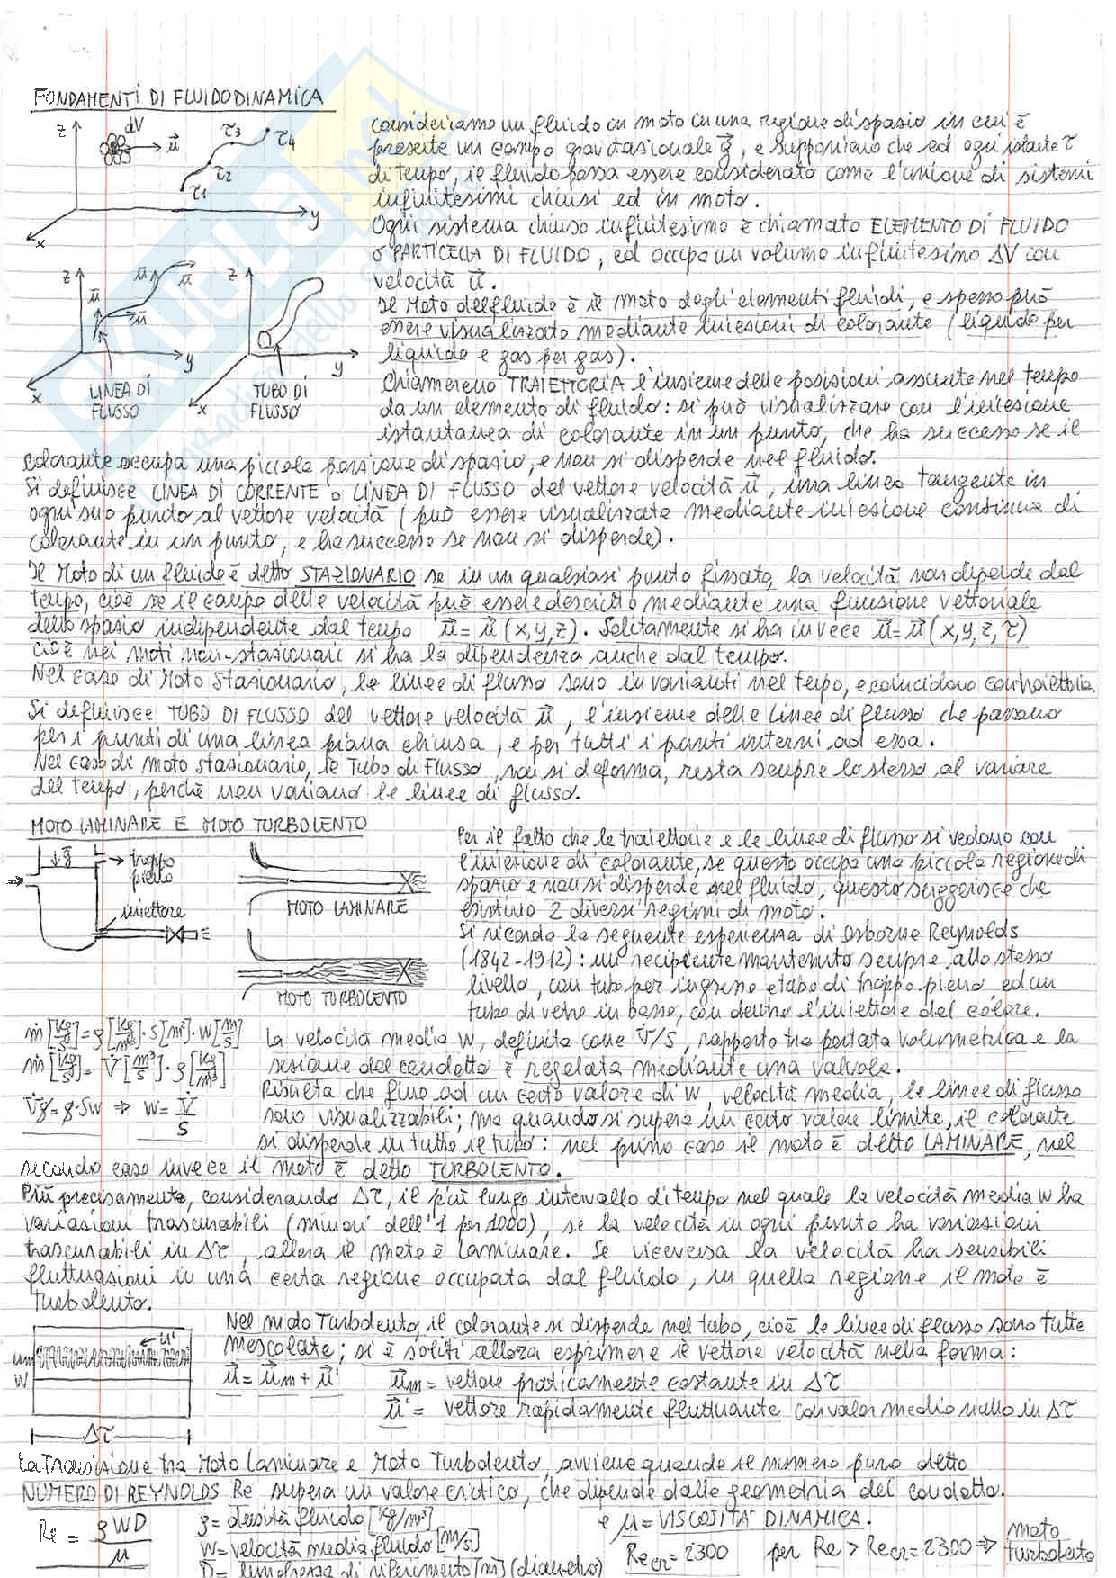 FONDAMENTI DI FLUIDODINAMICA
Consideriamo un fluido in moto in una regione di spazio in cui è
presente un campo gravitazionale g, e supponiamo che ad ogni istante τ
di tempo, il fluido possa essere considerato come l'unione di sistemi
infinitesimi chiusi ed in moto.
Ogni sistema chiuso infinitesimo è chiamato ELEMENTO DI FLUIDO
o PARTICELLA DI FLUIDO, ed occupa un volume infinitesimo ΔV con
velocità u.
Il Moto del fluido è il moto degli elementi fluidi, e spesso può
essere visualizzato mediante iniezioni di colorante (liquido per
liquido e gas per gas).
Chiameremo TRAIETTORIA l'insieme delle posizioni assunte nel tempo
da un elemento di fluido: si può visualizzare con l'iniezione
istantanea di colorante in un punto, che ha successo se il
colorante occupa una piccola porzione di spazio, e non si disperde nel fluido.
z dV u τ1 τ2 τ3 τ4 y x
z u u u u y x LINEA DI FLUSSO
z y x TUBO DI FLUSSO
Si definisce LINEA DI CORRENTE o LINEA DI FLUSSO del vettore velocità u, una linea tangente in
ogni suo punto al vettore velocità (può essere visualizzata mediante iniezione continua di
colorante in un punto, e ha successo se non si disperde).
Il Moto di un fluido è detto STAZIONARIO se in un qualsiasi punto fissato, la velocità non dipende dal
tempo, cioè se il campo delle velocità può essere descritto mediante una funzione vettoriale
dello spazio indipendente dal tempo u = u (x,y,z). Solitamente si ha invece u = u (x,y,z,τ)
cioè nei moti non-stazionari si ha la dipendenza anche dal tempo.
Nel caso di Moto Stazionario, le linee di flusso sono invarianti nel tempo, e coincidono con traiettoria.
Si definisce TUBO DI FLUSSO del vettore velocità u, l'insieme delle linee di flusso che passano
per i punti di una linea piana chiusa, e per tutti i punti interni ad essa.
Nel caso di moto stazionario, il Tubo di Flusso, non si deforma, resta sempre lo stesso al variare
del tempo, perché non variano le linee di flusso.
MOTO LAMINARE E MOTO TURBOLENTO
g troppo pieno
iniettore
MOTO LAMINARE
MOTO TURBOLENTO
Per il fatto che le traiettorie e le linee di flusso si vedono con
l'iniezione di colorante, se questo occupa una piccola regione di
spazio e non si disperde nel fluido, questo suggerisce che
esistono 2 diversi regimi di moto.
Si ricorda la seguente esperienza di Osborne Reynolds
(1842-1912): un recipiente mantenuto sempre allo stesso
livello, con tubo per ingresso e tubo di troppo pieno ed un
tubo di vetro in basso, con dentro l'iniettore del colore.
ṁ [kg/s] = ρ [kg/m³] · S [m²] · W [m/s]
ṁ [kg/s] = V̇ [m³/s] · ρ [kg/m³]
V̇ρ = ρ·SW ⇒ W = V̇/S
La velocità media W, definita come V̇/S, rapporto tra portata volumetrica e la
sezione del condotto è regolata mediante una valvola.
Risulta che fino ad un certo valore di W, velocità media, le linee di flusso
sono visualizzabili; ma quando si supera un certo valore limite, il colorante
si disperde in tutto il tubo: nel primo caso il moto è detto LAMINARE, nel
secondo caso invece il moto è detto TURBOLENTO.
Più precisamente, considerando Δτ, il più lungo intervallo di tempo nel quale la velocità media W ha
variazioni trascurabili (minori dell'1 per 1000), se la velocità in ogni punto ha variazioni
trascurabili in Δτ, allora il moto è laminare. Se viceversa la velocità ha sensibili
fluttuazioni in una certa regione occupata dal fluido, in quella regione il moto è
Turbolento.
u' um W Δτ
Nel modo Turbolento, il colorante si disperde nel tubo, cioè le linee di flusso sono tutte
mescolate; si è soliti allora esprimere il vettore velocità nella forma:
u = um + u'
um = vettore praticamente costante in Δτ
u' = vettore rapidamente fluttuante con valor medio nullo in Δτ
La Transizione tra Moto Laminare e Moto Turbolento, avviene quando il numero puro detto
NUMERO DI REYNOLDS Re supera un valore critico, che dipende dalla geometria del condotto.
Re = ρWD/μ
ρ = densità fluido [kg/m³]
W = velocità media fluido [m/s]
D = lunghezza di riferimento [m] (diametro)
e μ = VISCOSITÀ DINAMICA.
Recr = 2300 per Re > Recr = 2300 ⇒ moto turbolento